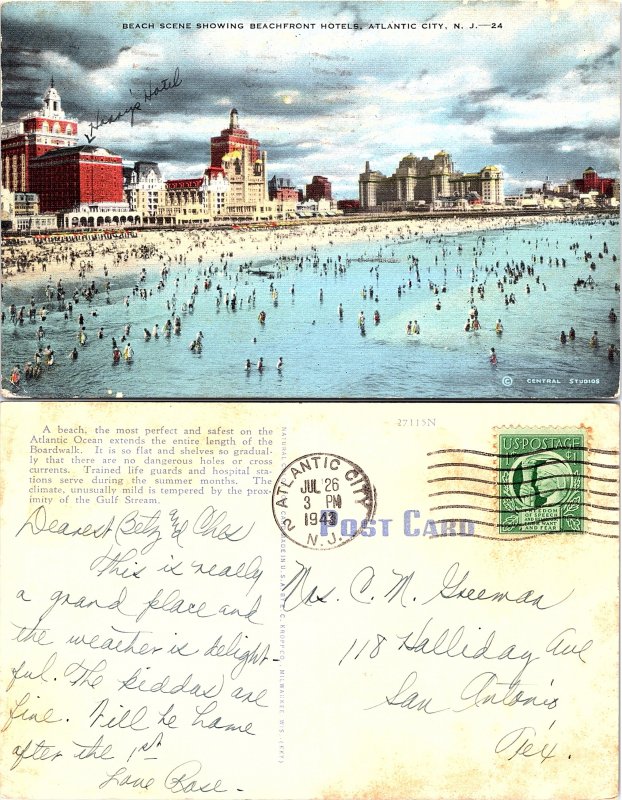 BEACH SCENE SHOWING BEACHFRONT HOTELS, ATLANTIC CITY, N. J.—24
Hotel
© CENTRAL STUDIOS
27115N
A beach, the most perfect and safest on the
Atlantic Ocean extends the entire length of the
Boardwalk. It is so flat and shelves so gradual-
ly that there are no dangerous holes or cross
currents. Trained life guards and hospital sta-
tions serve during the summer months. The
climate, unusually mild is tempered by the prox-
imity of the Gulf Stream.
ATLANTIC CITY
2
JUL 26
3 PM
1943
N.J.
POST CARD
U.S. POSTAGE 1¢
FREEDOM
OF SPEECH
AND RELIGION, FROM
WANT AND
FEAR
Dearest Betz and Chas
This is really
a grand place and
the weather is delight-
ful. The kiddas are
fine. Will be home
after the 1st
Love Rose-
Mrs. C. M. Greeman
118 Halliday Ave
San Antonio
Tex.